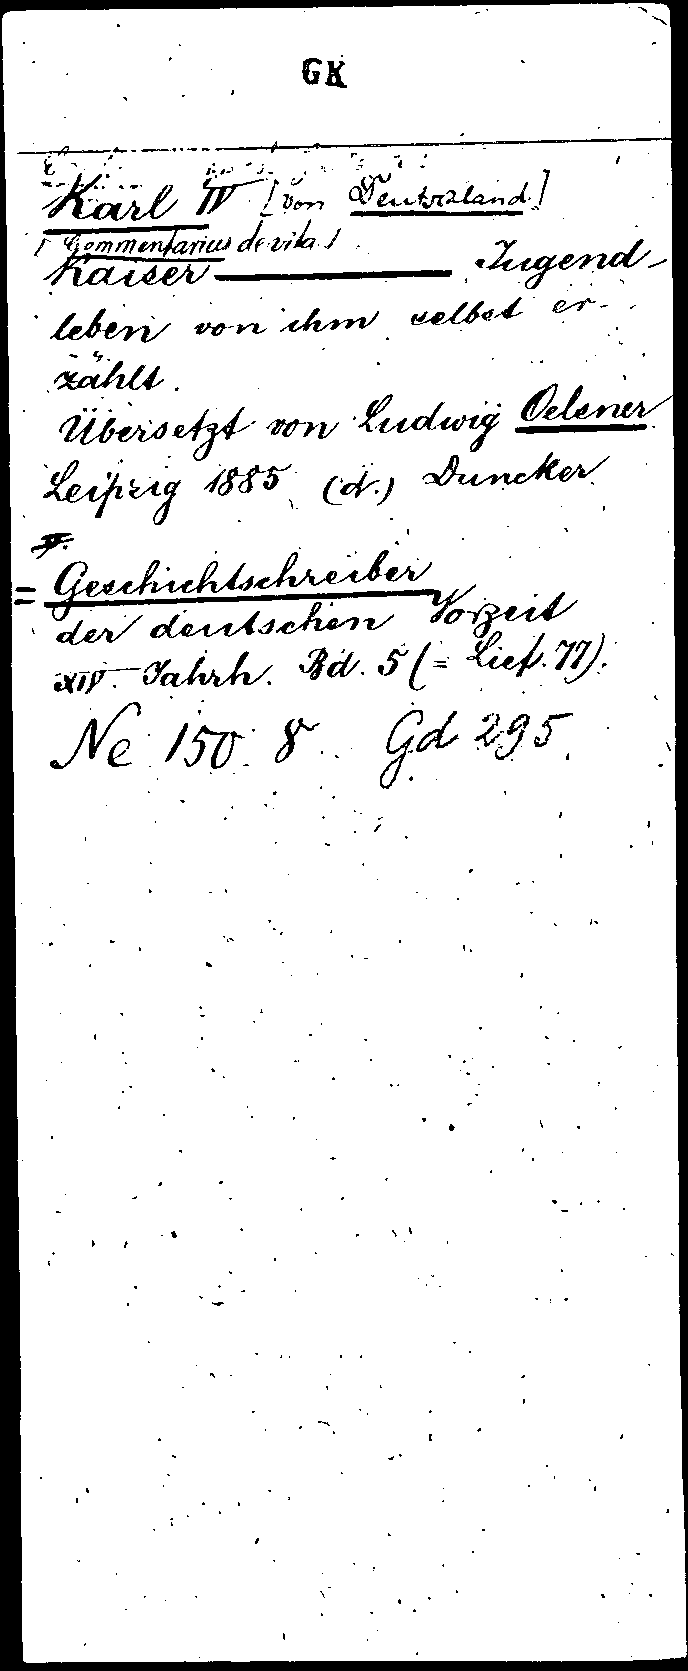 GK
Karl IV [von Deutschland]
[Commentarius de vita]
Kaiser ——— Jugend-
leben von ihm selbst er-
zählt.
Übersetzt von Ludwig Oelsner
Leipzig 1885 (d.) Duncker
= Geschichtschreiber
der deutschen Vorzeit
XIV. Jahrh. Bd. 5 (= Lief. 77).
Ne 150 8 Gd 295